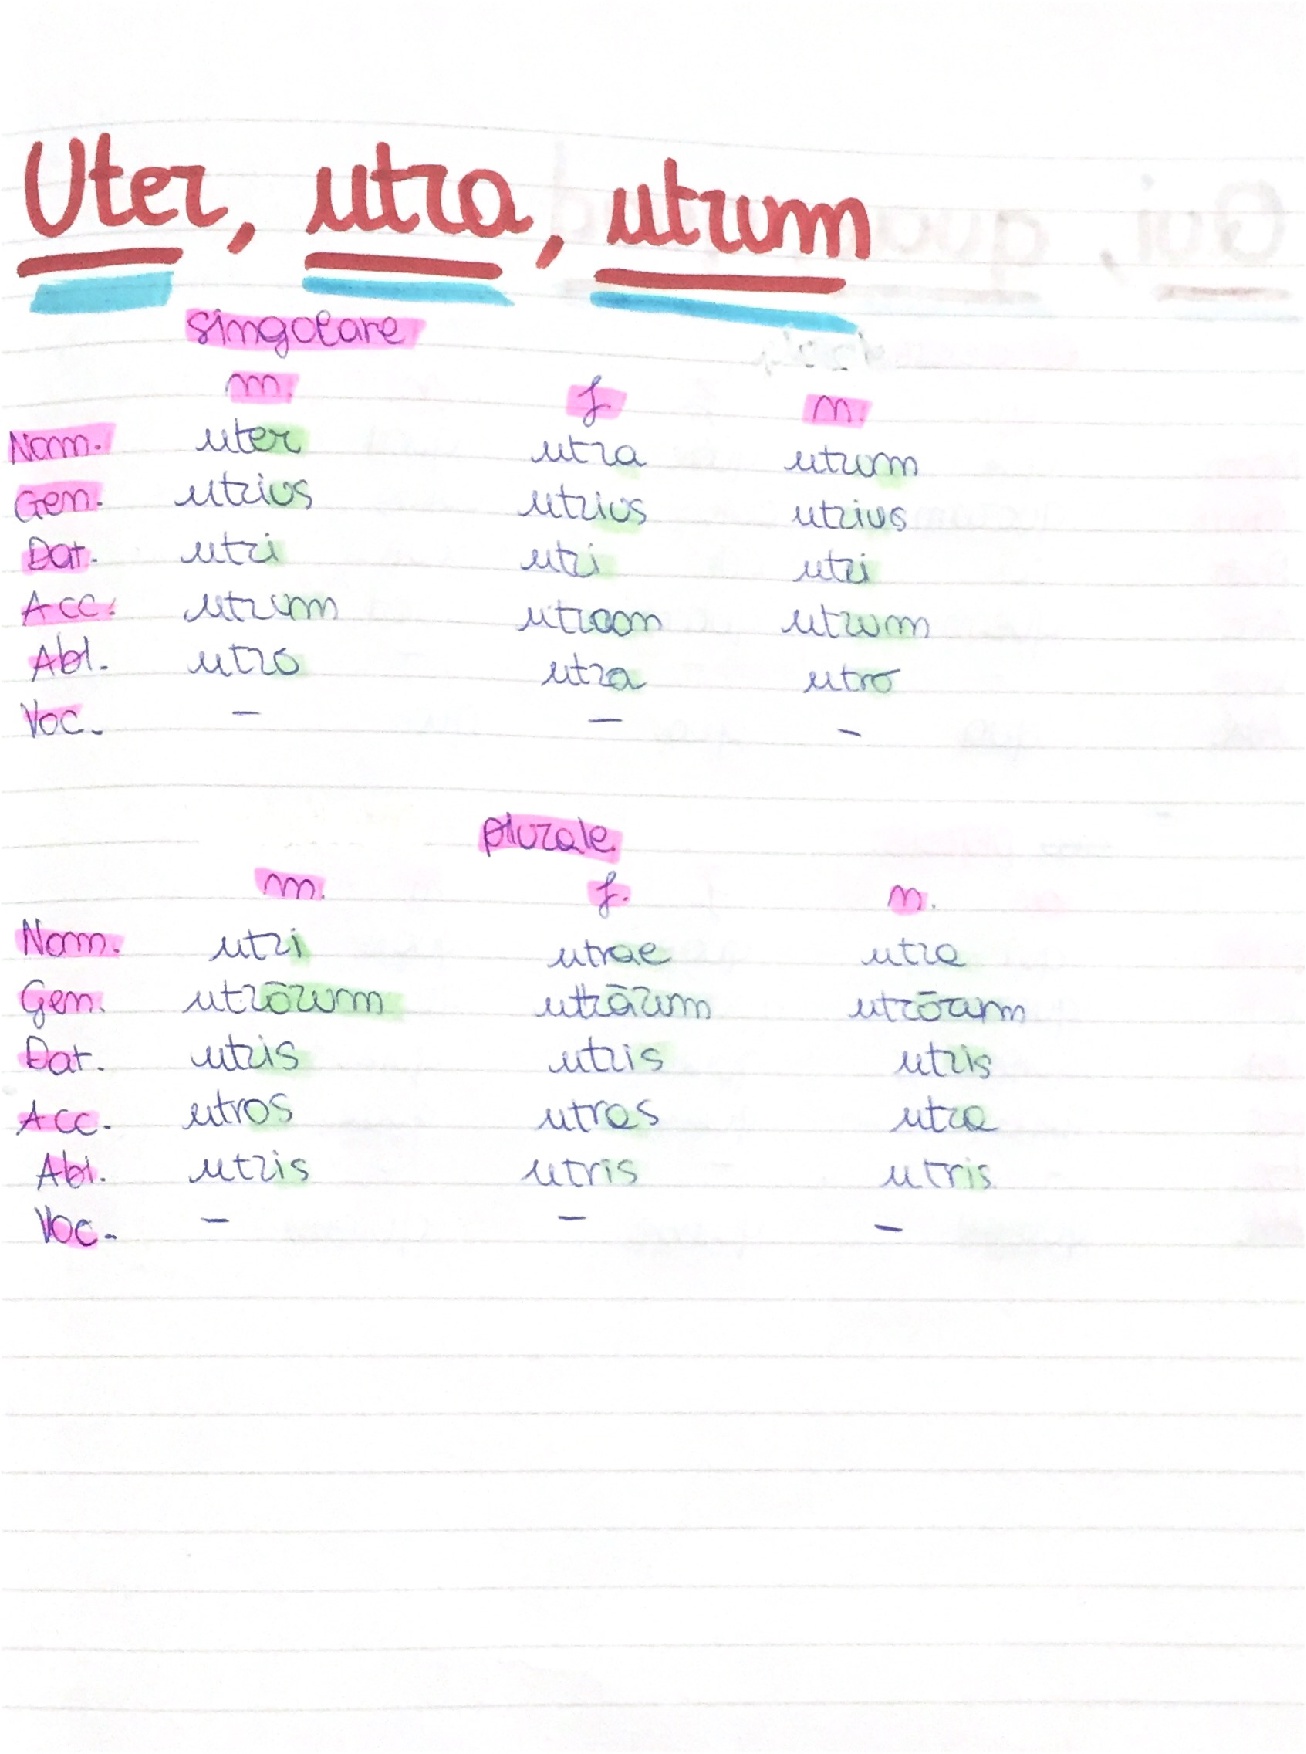 Uter, utra, utrum
singolare
m. f n.
Nom. uter utra utrum
Gen. utrius utrius utrius
Dat. utri utri utri
Acc. utrum utram utrum
Abl. utro utra utro
Voc. - - -
plurale
m. f. n.
Nom. utri utrae utra
Gen. utrōrum utrārum utrōrum
Dat. utris utris utris
Acc. utros utras utra
Abl. utris utris utris
Voc. - - -